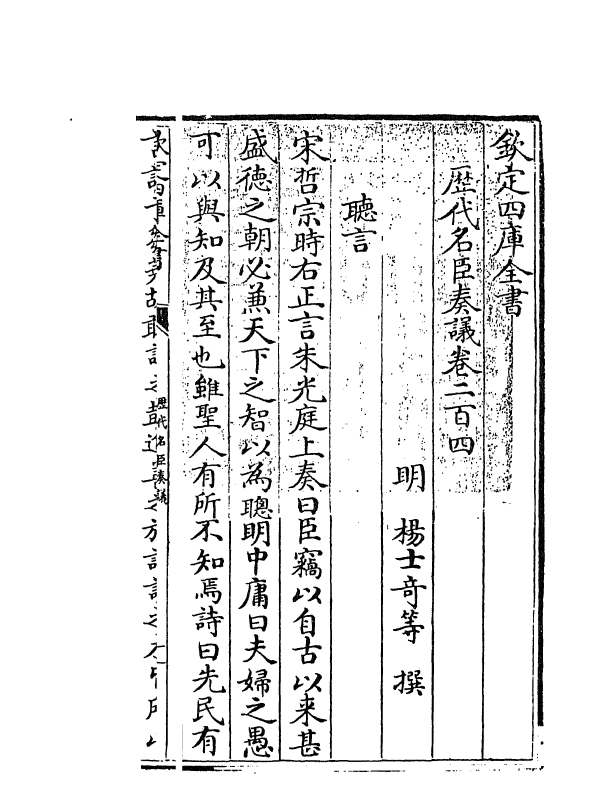 欽定四庫全書
歴代名臣奏議卷二百四
明 楊士奇等 撰
聽言
宋哲宗時右正言朱光庭上奏曰臣竊以自古以来甚
盛徳之朝必兼天下之智以為聰明中庸曰夫婦之愚
可以與知及其至也雖聖人有所不知焉詩曰先民有
歴代名臣奏議